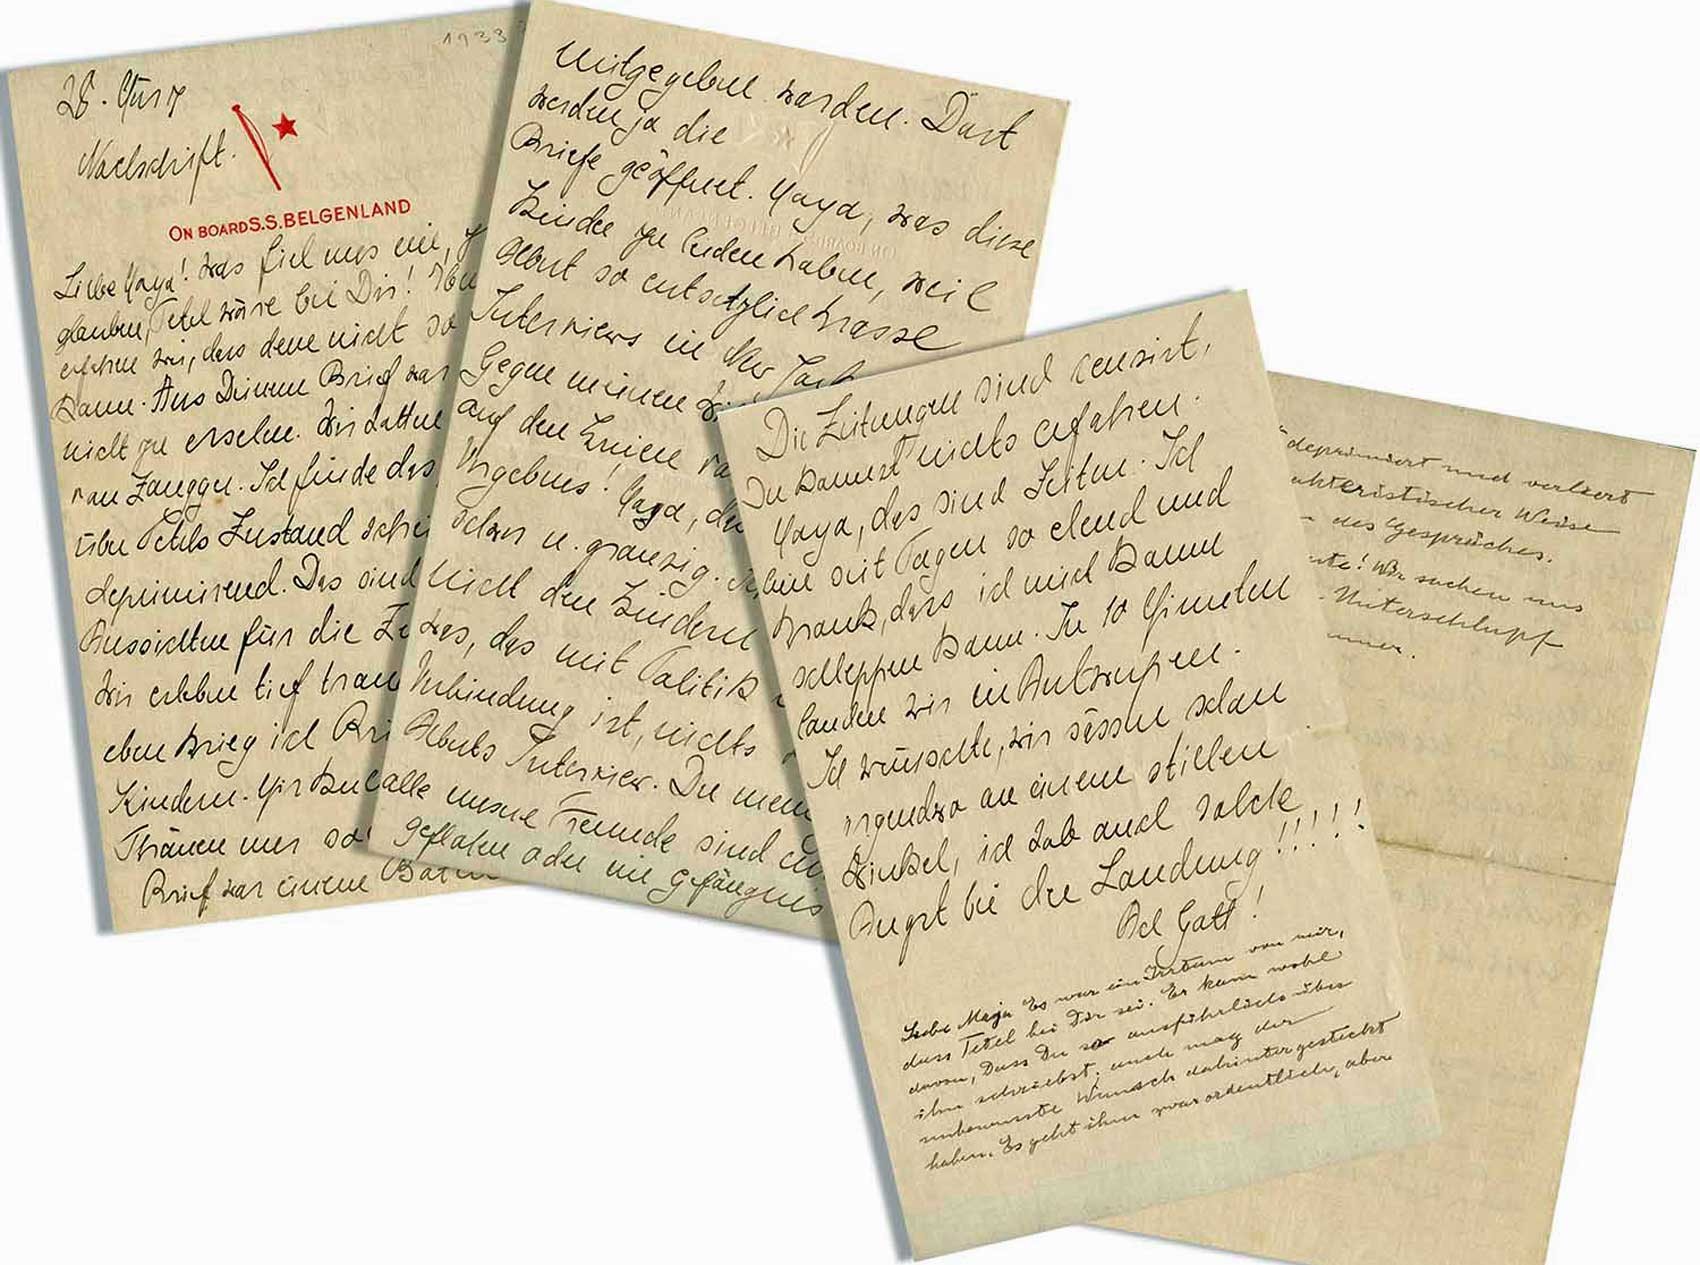 1933
28. März
Nachschrift.
ON BOARD S.S. BELGENLAND
Liebe Maya! Was fiel uns ein,
glauben, Tetel wäre bei Dir!
erfahren wir, dass dem nicht so
kann. Aus Deinem Brief war
nicht zu ersehen. Wir hatten
von Zangger. Ich finde das
über Tetels Zustand
deprimirend. Das sind
Aussichten für die
Wir erleben tief
eben krieg ich
Kindern. Mir
Thränen nur so
Brief war einem
mitgegeben worden. Dort
werden ja die
Briefe geöffnet. Maya, was diese
Kinder zu leiden haben, weil
Albert so entsetzlich krasse
Interviews in New York
Gegen meinen
auf den Knieen
Vergebens! Maya,
u. grausig.
nicht den Kindern
das mit Politik
Verbindung ist, nichts
Alberts Interview. Du
alle meine Freunde sind
geflohen oder im Gefängnis
Die Zeitungen sind censirt,
Du kannst nichts erfahren.
Maya, das sind Zeiten. Ich
bin seit Tagen so elend und
krank, dass ich mich kaum
schleppen kann. In 10 Minuten
landen wir in Antwerpen.
Ich wünschte, wir sässen schon
irgendwo an einem stillen
Winkel, ich hab auch solche
Angst bei der Landung!!!!!
Ach Gott!
Liebe Maja Es war ein Irrtum von mir,
dass Tetel bei Dir sei. Er kam wohl
davon, dass Du so ausführlich über
ihn schriebst, auch mag der
unbewusste Wunsch dahintergesteckt
haben. Es geht ihm zwar ordentlich, aber
deprimiert und verliert
akteristischer Weise
des Gespräches.
Wir suchen uns
Unterschlupf